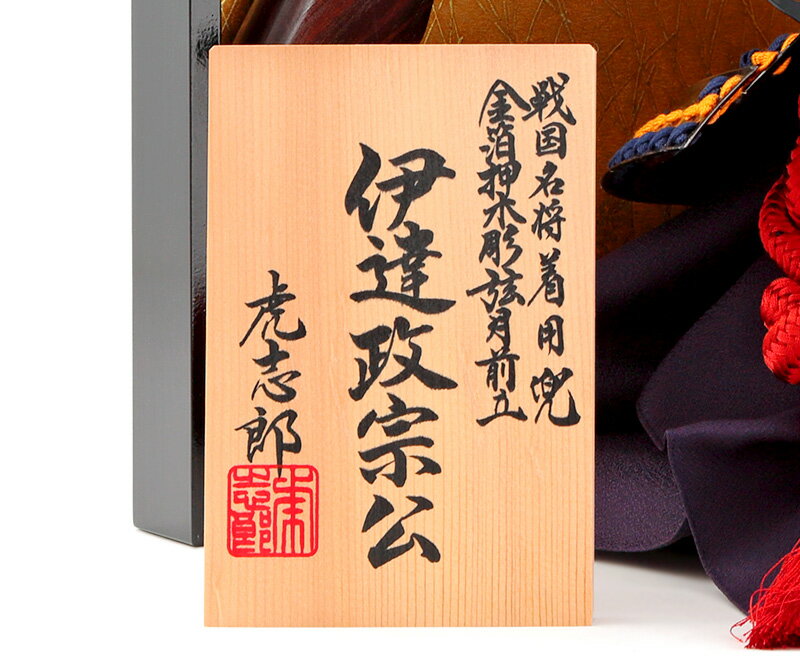 戦国名将着用兜
金箔押木彫弦月前立
伊達政宗公
虎志郎